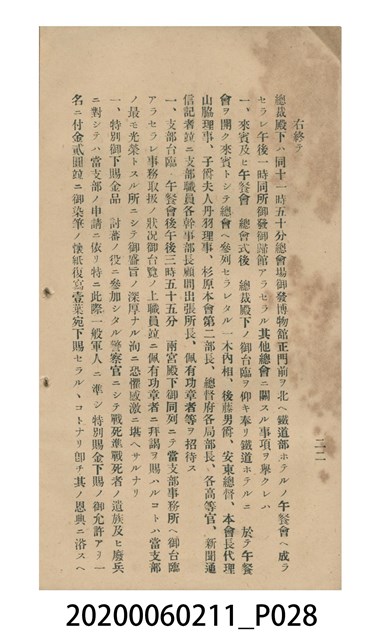 右終テ
總裁殿下ハ同十一時五十分總會場御發博物館正門前ヲ北ヘ鐵道部ホテルノ午餐會ヘ成ラ
セラレ午後一時同所御發御歸館アラセラル其他總會ニ關スル事項ヲ擧クレハ
一、來賓及ヒ午餐會　總會式後　總裁殿下ノ御台臨ヲ仰キ奉リ鐵道ホテルニ　於テ午餐
會ヲ開ク來賓トシテ總會ヘ參列セラレタル一木內相、後藤男爵、安東總督、本會長代理
山脇理事、子爵夫人丹羽理事、杉原本會第二部長、總督府各局部長、各高等官、新聞通
信記者竝ニ支部職員各幹事部長顧問出張所長、佩有功章者等ヲ招待ス
一、支部台臨　午餐會後午後三時五十五分　兩宮殿下御同列ニテ當支部事務所ヘ御台臨
アラセラレ事務取扱ノ狀況御台覽ノ上職員竝ニ佩有功章者ニ拜謁ヲ賜ハルコトハ當支部
ノ最モ光榮トスル所ニシテ御盛旨ノ深厚ナル洵ニ恐懼感激ニ堪ヘサルナリ
一、特別御下賜金品　討蕃ノ役ニ參加シタル警察官ニシテ戰死準戰死者ノ遺族及ヒ廢兵
ニ對シテハ當支部ノ申請ニ依リ特ニ此際一般軍人ニ準シ特別賜金下賜ノ御允許アリ一
名ニ付金貳圓竝ニ御染筆ノ懷紙復寫壹葉宛下賜セラルヽコトナリ卽チ其ノ恩典ニ浴スヘ
二二
20200060211_P028